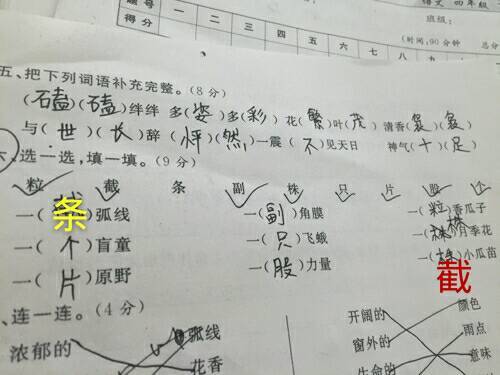 题号 一 二 三 四 五 六 七 八
得分
语文 四年级
班级:
(时间:90分钟 总分
五、把下列词语补充完整。(8分)
(磕)(磕)绊绊 多(姿)多(彩) 花(繁)叶(茂) 清香(袅)(袅)
与(世)(长)辞 (怦)(然)一震 (不)见天日 神气(十)(足)
六、选一选,填一填。(9分)
粒 截 条 副 株 只 片 股 个
一(条)弧线 一(副)角膜 一(粒)香瓜子
一(个)盲童 一(只)飞蛾 一(株)月季花
一(片)原野 一(股)力量 一(截)小瓜苗
、连一连。(4分)
弧线 开阔的 颜色
浓郁的 花香 窗外的 雨点
生命的 意味